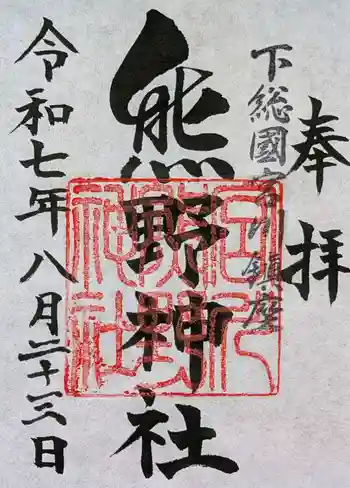 奉拝
下総國古川鎮座
熊野神社
令和七年八月二十三日